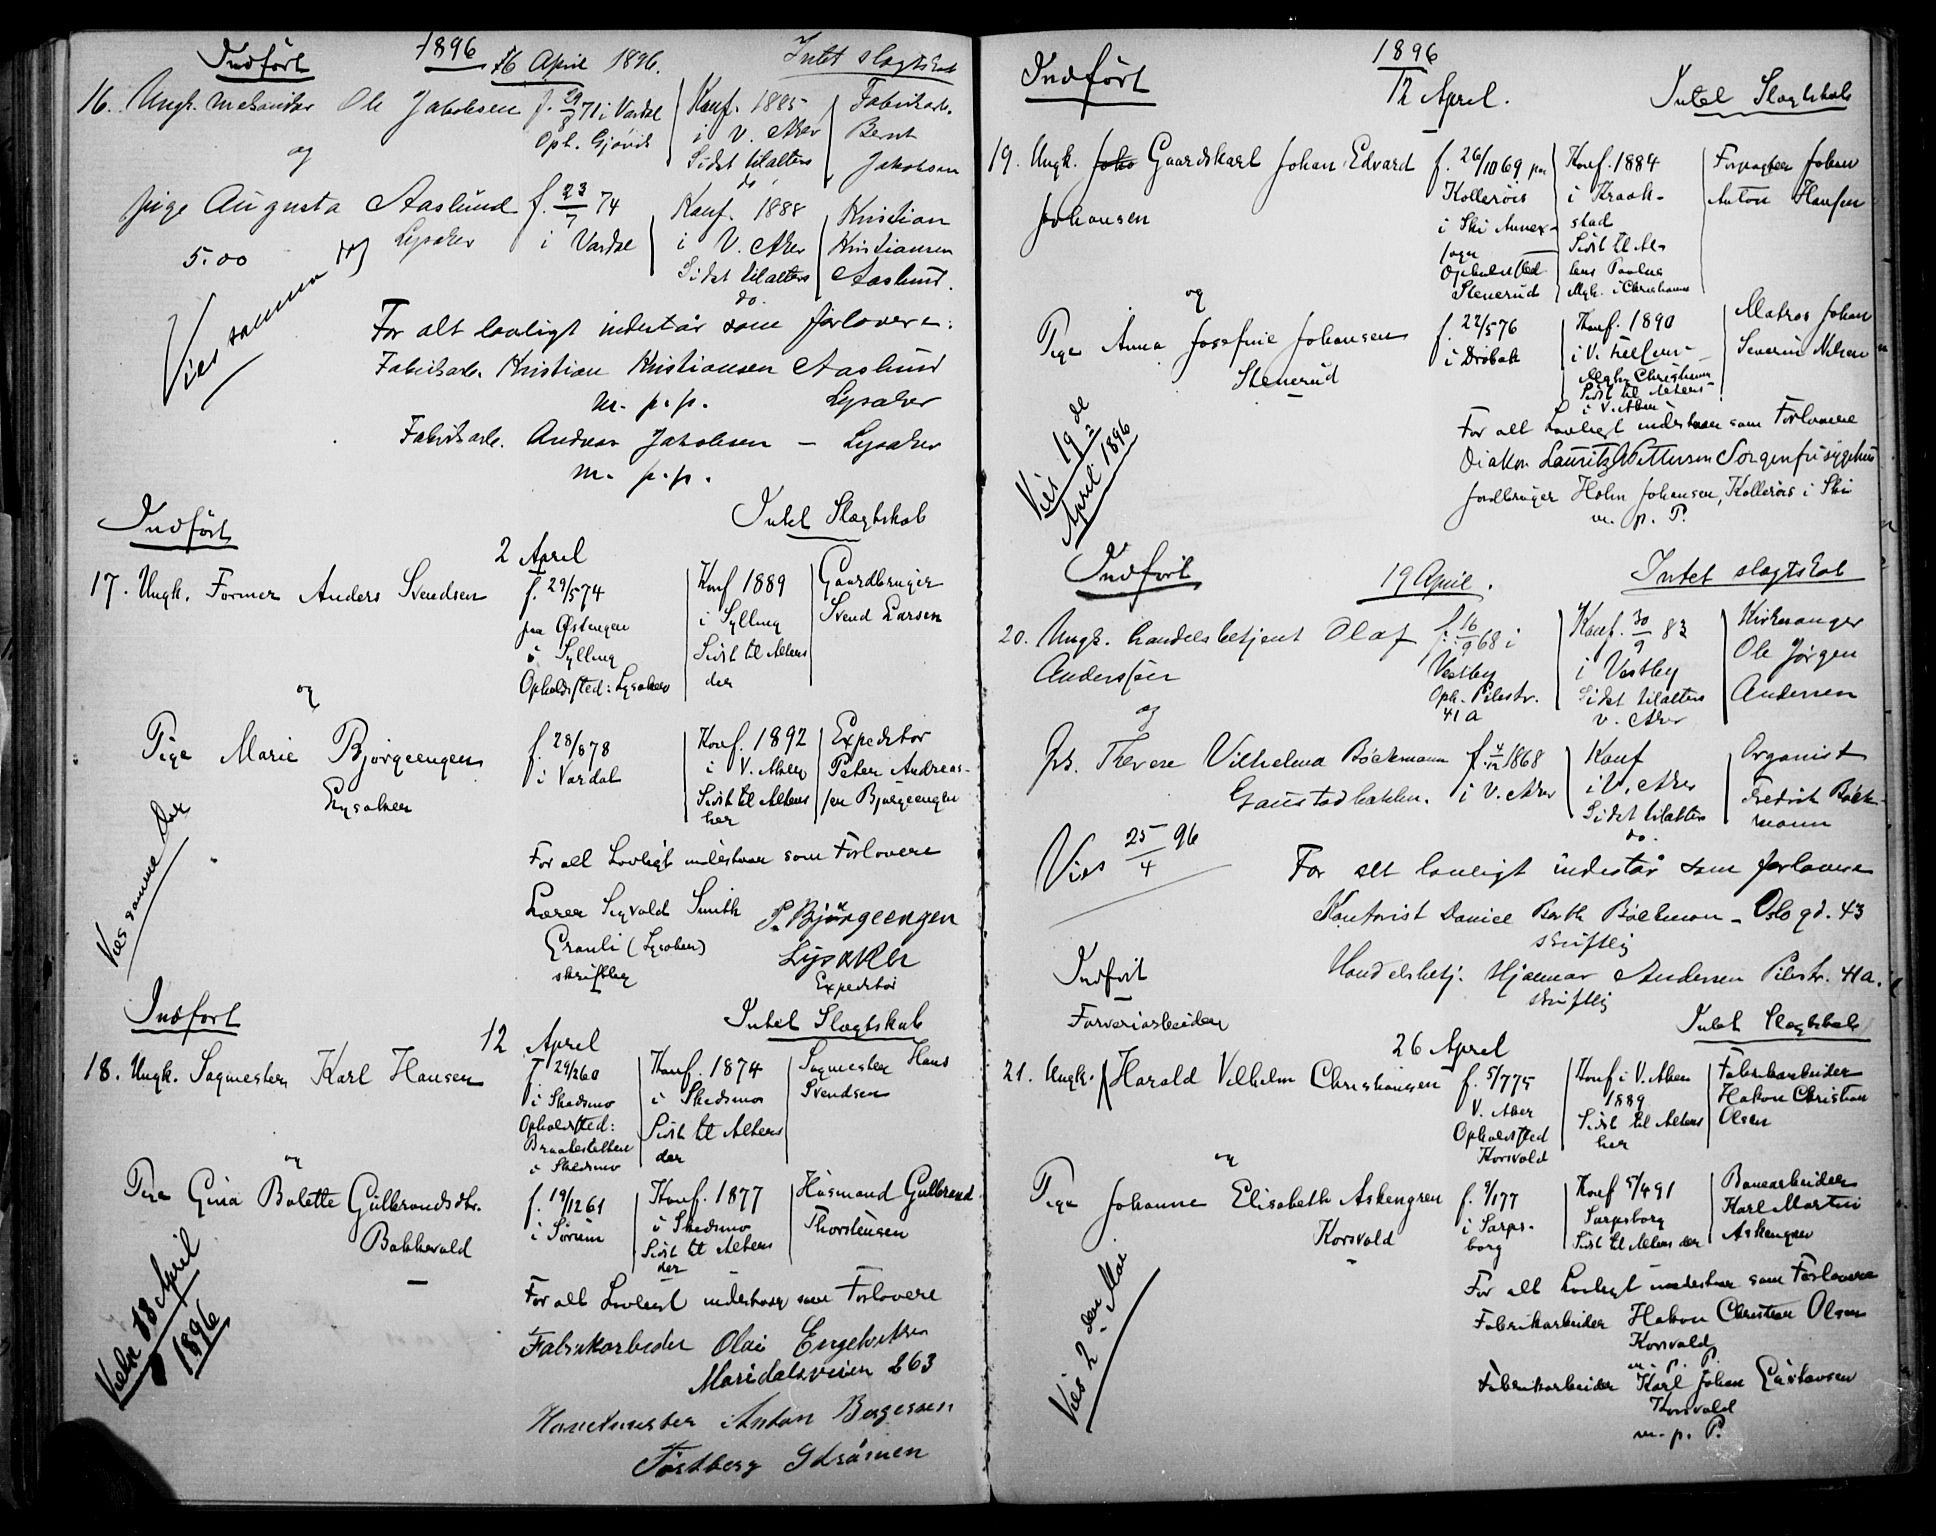 1896
Indført 16 April 1896. Intet slægtskab
16. Ungk. mekaniker Ole Jakobsen f. 29/8 71 i Vardal Konf. 1885 Fabrikarb.
Oph. Gjøvik i V. Aker Bernt
og Sidst tilalters Jakobsen
do.
pige Augusta Aaslund f. 23/7 74 Konf. 1888 Kristian
Lysaker i Vardal i V. Aker Kristiansen
5.00 Sidst tilalters Aaslund.
do.
Vies samme
For alt lovligt indestår som forlovere:
Fabrikarb. Kristian Kristiansen Aaslund
m. p. p. Lysaker
Fabrikarb. Andreas Jakobsen – Lysaker
m. p. p.
Indført Intet Slægtskab
2 April
17. Ungk. Former Anders Svendsen f. 29/5 74 Konf 1889 Gaardbruger
paa Østengen i Sylling Svend Larsen
i Sylling Sidst til Alters
Opholdsted: Lysaker der
og
Pige Marie Bjørgeengen f. 28/8 78 Konf. 1892 Expeditør
Lysaker i Vardal i V. Aker Peter Andreas-
Sidst til Alters sen Bjørgeengen
her
Vies samme Dag
For alt Lovligt indestaar som Forlovere
Lærer Sigvald Smith P. Bjørgeengen
Granli (Lysaker) Lysaker
skriftlig Expeditør
Indført Intet Slægtskab
12 April
18. Ungk. Sagmester Karl Hansen f. 29/2 60 Konf. 1874 Sagmester Hans
i Skedsmo i Skedsmo Svendsen
Opholdsted: Sidst til Alters
Braatestubben der
i Skedsmo
og
Pige Gina Bolette Gulbrandsdtr. f. 19/12 61 Konf. 1877 Husmand Gulbrand
Bakkevold i Sørum i Skedsmo Thorstensen
Sidst til Alters
der
Viet 18 April
1896
For alt Lovligt indestaar som Forlovere
Fabrikarbeider Olai Engebretsen
Maridalsveien 263
Anton Borgersen
Strømmen
1896
Indført 12 April. Intet Slægtskab
19. Ungk. Gaardskarl Johan Edvard f. 26/10 69 paa Konf. 1884 Forpagter Johan
Johansen Kollerøis i Kraak- Anton Hansen
i Ski Annex- stad
sogn Sidst til Al-
Opholdsted ters Paulus
Stenerud Mgh. i Christiania
og
Pige Anna Josefine Johansen f. 22/5 76 Konf. 1890 Matros Johan
Stenerud i Drøbak i V. Severin Nilsen
Sidst til Alters
i V. Aker
Vies 19de
April 1896
For alt Lovligt indestaar som Forlovere
Diakon Lauritz Pettersen Sorgenfri sygehus
Jordbruger Holm Johansen, Kollerøis i Ski
m. p. P.
Indført 19 April. Intet slægtskab
20. Ungk. handelsbetjent Olaf f. 16/9 68 i Konf. 30/9 83 Kirkesanger
Anderssen Vestby i Vestby Ole Jørgen
Oph. Pilestr. Sidst tilalters Andersen
og 41 a v. Aker
frk. Therese Vilhelma Böckmann f. 4/12 1868 Konf Organist
Gaustadbakken. i V. Aker i V. Aker Fredrik Böck-
Sidst tilalters mann
do.
Vies 25/4 96
For alt lovligt indestår som forlovere
Kontorist Daniel Barth Böckman – Oslo gd. 43
skriftlig
Handelsbetj. Hjalmar Andersen Pilestr. 41 a.
skriftlig
Indført Intet Slægtskab
Farveriarbeider 26 April
21. Ungk. Harald Vilhelm Christiansen f. 5/7 75 Konf i V. Aker Fabrikarbeider
V. Aker 1889 Hakon Christian
Opholdsted Sidst til Alters Olsen
Korsvold her
og
Pige Johanne Elisabeth Askengren f. 9/1 77 Konf 5/4 91 Banearbeider
Korsvold i Sarps- Sarpsborg Karl Martin
borg Sidst til Alters der Askengren
Vies 2 den Mai
For alt Lovligt indestaar som Forlovere
Fabrikarbeider Hakon Christian Olsen
Korsvold
m. p. P.
Fabrikarbeider Karl Johan Gustavsen
Korsvold
m. p. P.